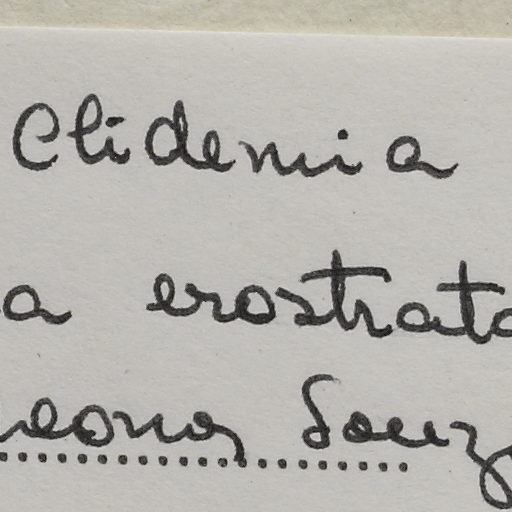 Clidemia
a erostrata
Souz